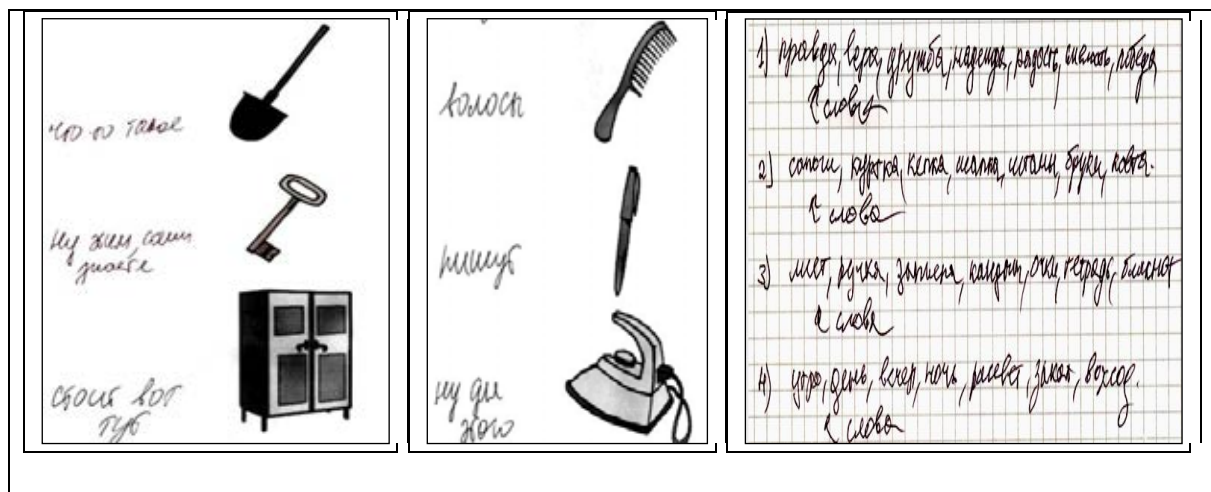 что-то такое
ну сами
знаете
стоит вот
тут
волосы
пишут
ну для
этого
1) правда, вера, дружба, надежда, радость, смелость, победа
2 слова
2) сапоги, куртка, кепка, шапка, штаны, брюки, кофта.
2 слова
3) лист, ручка, очки, тетрадь, блокнот
2 слова
4) утро, день, вечер, ночь, рассвет, закат, восход.
2 слова